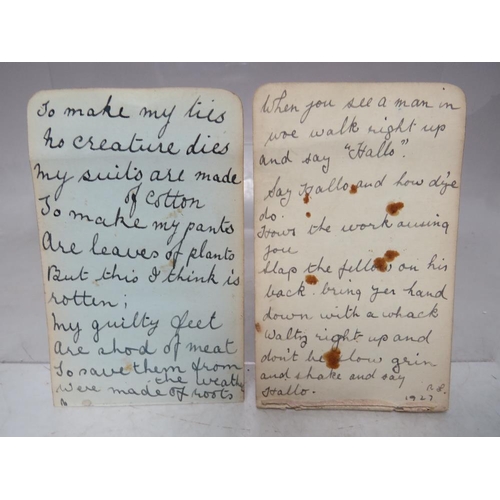 To make my ties
No creature dies
My suits are made
of cotton
To make my pants
Are leaves of plants
But this I think is
rotten;
My guilty feet
Are ahod of meat
To save them from
the weath
Were made of roots
When you see a man in
woe walk right up
and say "Hallo".
Say Hallo and how d'ye
do.
Hows the work ausing
you
Slap the fellow on his
back. bring yer hand
down with a whack
Waltz right up and
don't be slow grin
and shake and say
Hallo.
1923